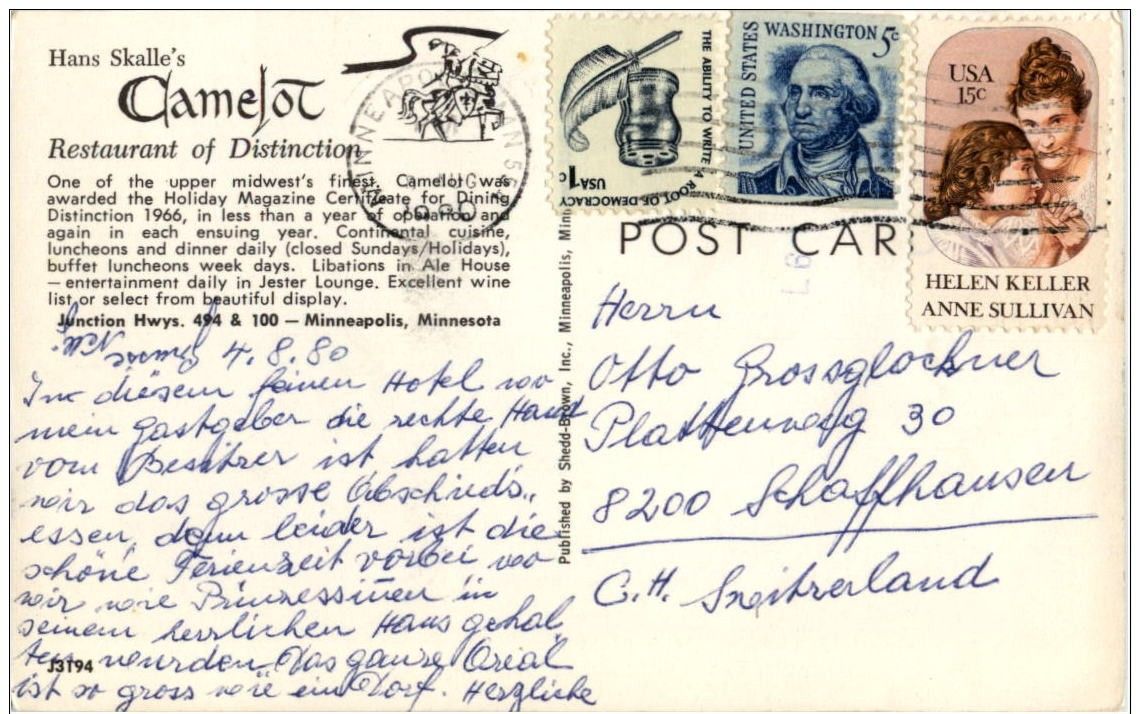 Hans Skalle's
Camelot
Restaurant of Distinction
One of the upper midwest's finest, Camelot was
awarded the Holiday Magazine Certificate for Dining
Distinction 1966, in less than a year of operation and
again in each ensuing year. Continental cuisine,
luncheons and dinner daily (closed Sundays/Holidays),
buffet luncheons week days. Libations in Ale House
—entertainment daily in Jester Lounge. Excellent wine
list or select from beautiful display.
Junction Hwys. 494 & 100 — Minneapolis, Minnesota
4.8.80
In diesem feinen Hotel wo
mein Gastgeber die rechte Hand
vom Besitzer ist hatten
wir das grosse Abschieds..
essen, denn leider ist die
schöne Ferienzeit vorbei wo
wir wie Prinzessinen in
seinem herrlichen Haus gehal
ten wurden. Das ganze Areal
ist so gross wie ein Dorf. Herzliche
J3194
Published by Shedd-Brown, Inc., Minneapolis, Minn
MINNEAPOLIS MN 55
AUG
1980
THE ABILITY TO WRITE A ROOT OF DEMOCRACY
USA 1c
UNITED STATES
WASHINGTON 5c
USA
15c
HELEN KELLER
ANNE SULLIVAN
POST CAR
L6
Herrn
Otto Grossglockner
Plattenweg 30
8200 Schaffhausen
C.H. Switzerland